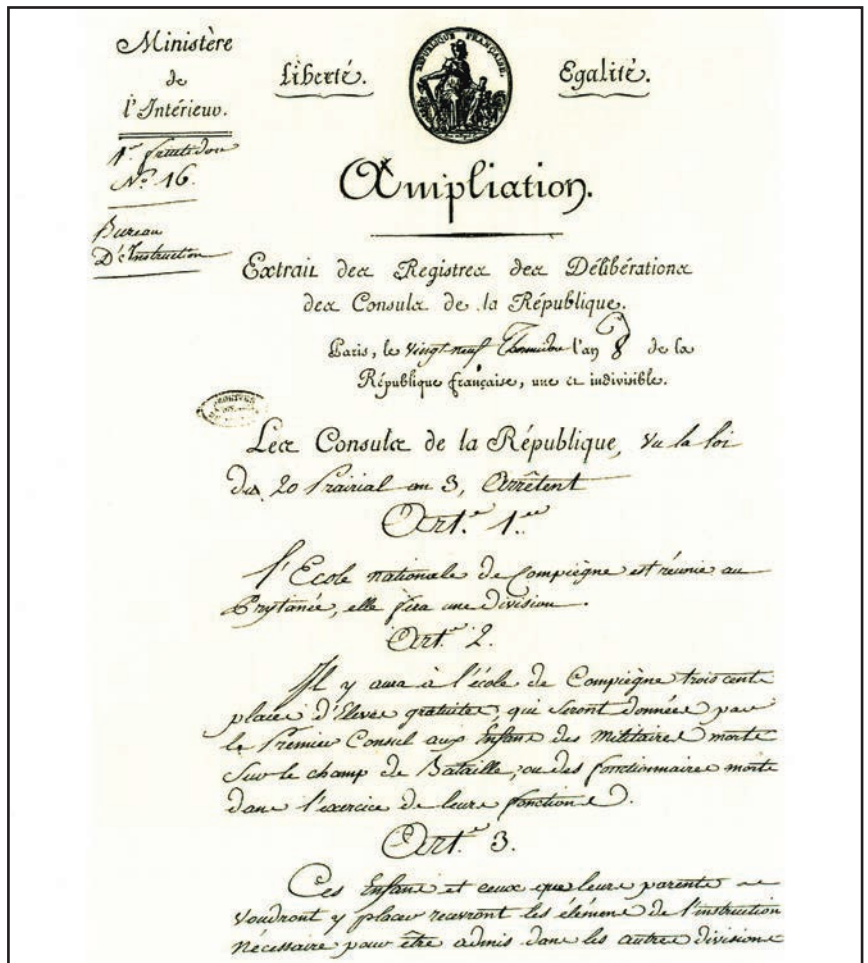 Ministère
de
l'Intérieur.
N.º 16.
Bureau
D'Instruction
Liberté.
RÉPUBLIQUE FRANÇAISE.
Egalité.
Ampliation.
Extrait des Registres des Délibérations
des Consuls de la République.
Paris, le vingt neuf Thermidor l'an 8 de la
République française, une et indivisible.
Les Consuls de la République, Vu la loi
du 20 Prairial an 3, Arrêtent
Art. 1.er
l'Ecole nationale de Compiègne est réunie au
Prytanée, elle fera une division.
Art.e 2.
Il y aura à l'école de Compiègne trois cents
places d'Elèves gratuites, qui seront données par
le Premier Consul aux Enfans des Militaires morts
Sur le champ de Bataille, ou des fonctionnaires morts
dans l'exercice de leurs fonctions.
Art.e 3.
Ces Enfans et ceux que leurs parents
voudront y placer recevront les élémens de l'instruction
nécessaire pour être admis dans les autres divisions